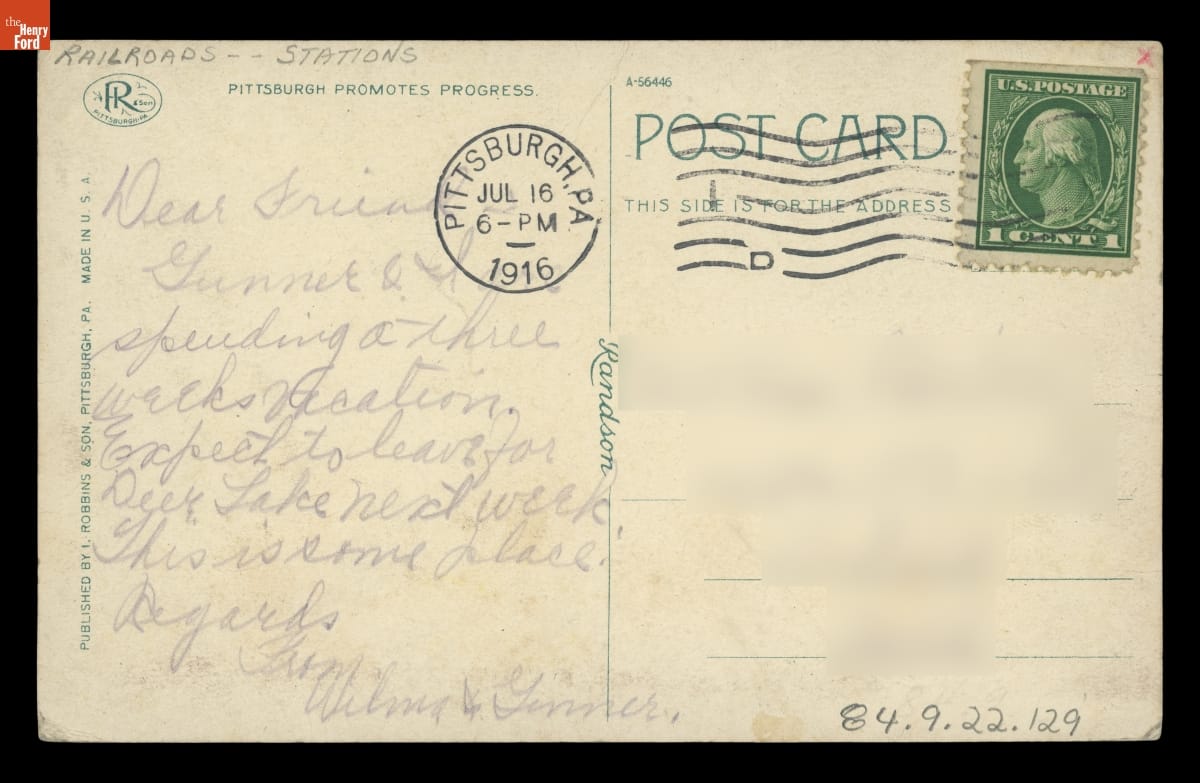 the
Henry
Ford
RAILROADS -- STATIONS
R & Son
PITTSBURGH, PA.
PITTSBURGH PROMOTES PROGRESS.
A-56446
POST CARD
THIS SIDE IS FOR THE ADDRESS
U.S. POSTAGE
1 CENT 1
PITTSBURGH, PA
JUL 16
6-PM
1916
D
PUBLISHED BY I. ROBBINS & SON, PITTSBURGH, PA. MADE IN U.S.A.
Randson
Dear Friend
Gunner & I
spending a three
weeks vacation.
Expect to leave for
Deer Lake next week.
This is some place.
Regards
From
Wilma & Gunner.
84.9.22.129